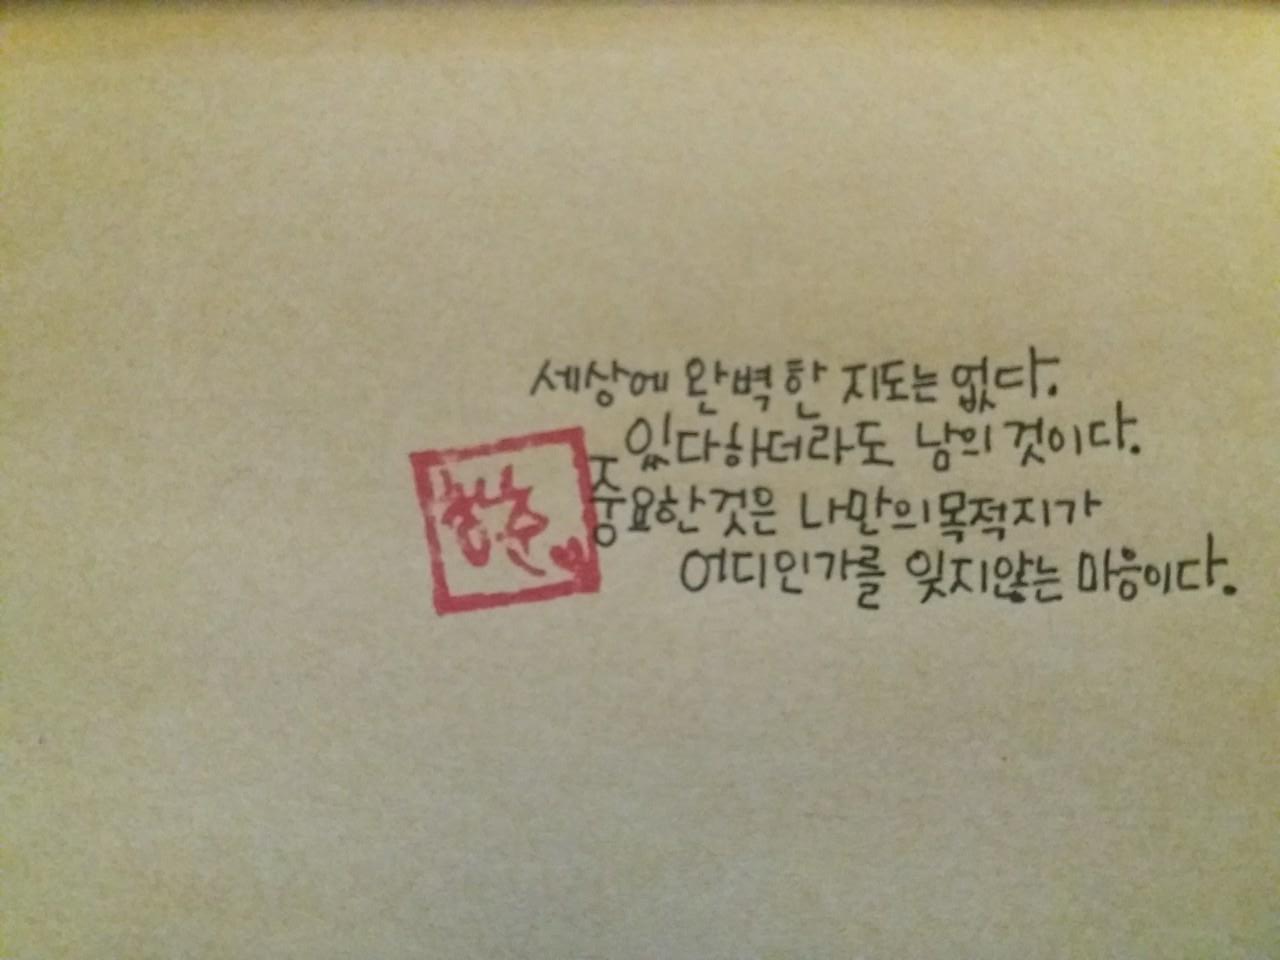 세상에 완벽한 지도는 없다.
있다하더라도 남의 것이다.
중요한것은 나만의목적지가
어디인가를 잊지않는 마음이다.